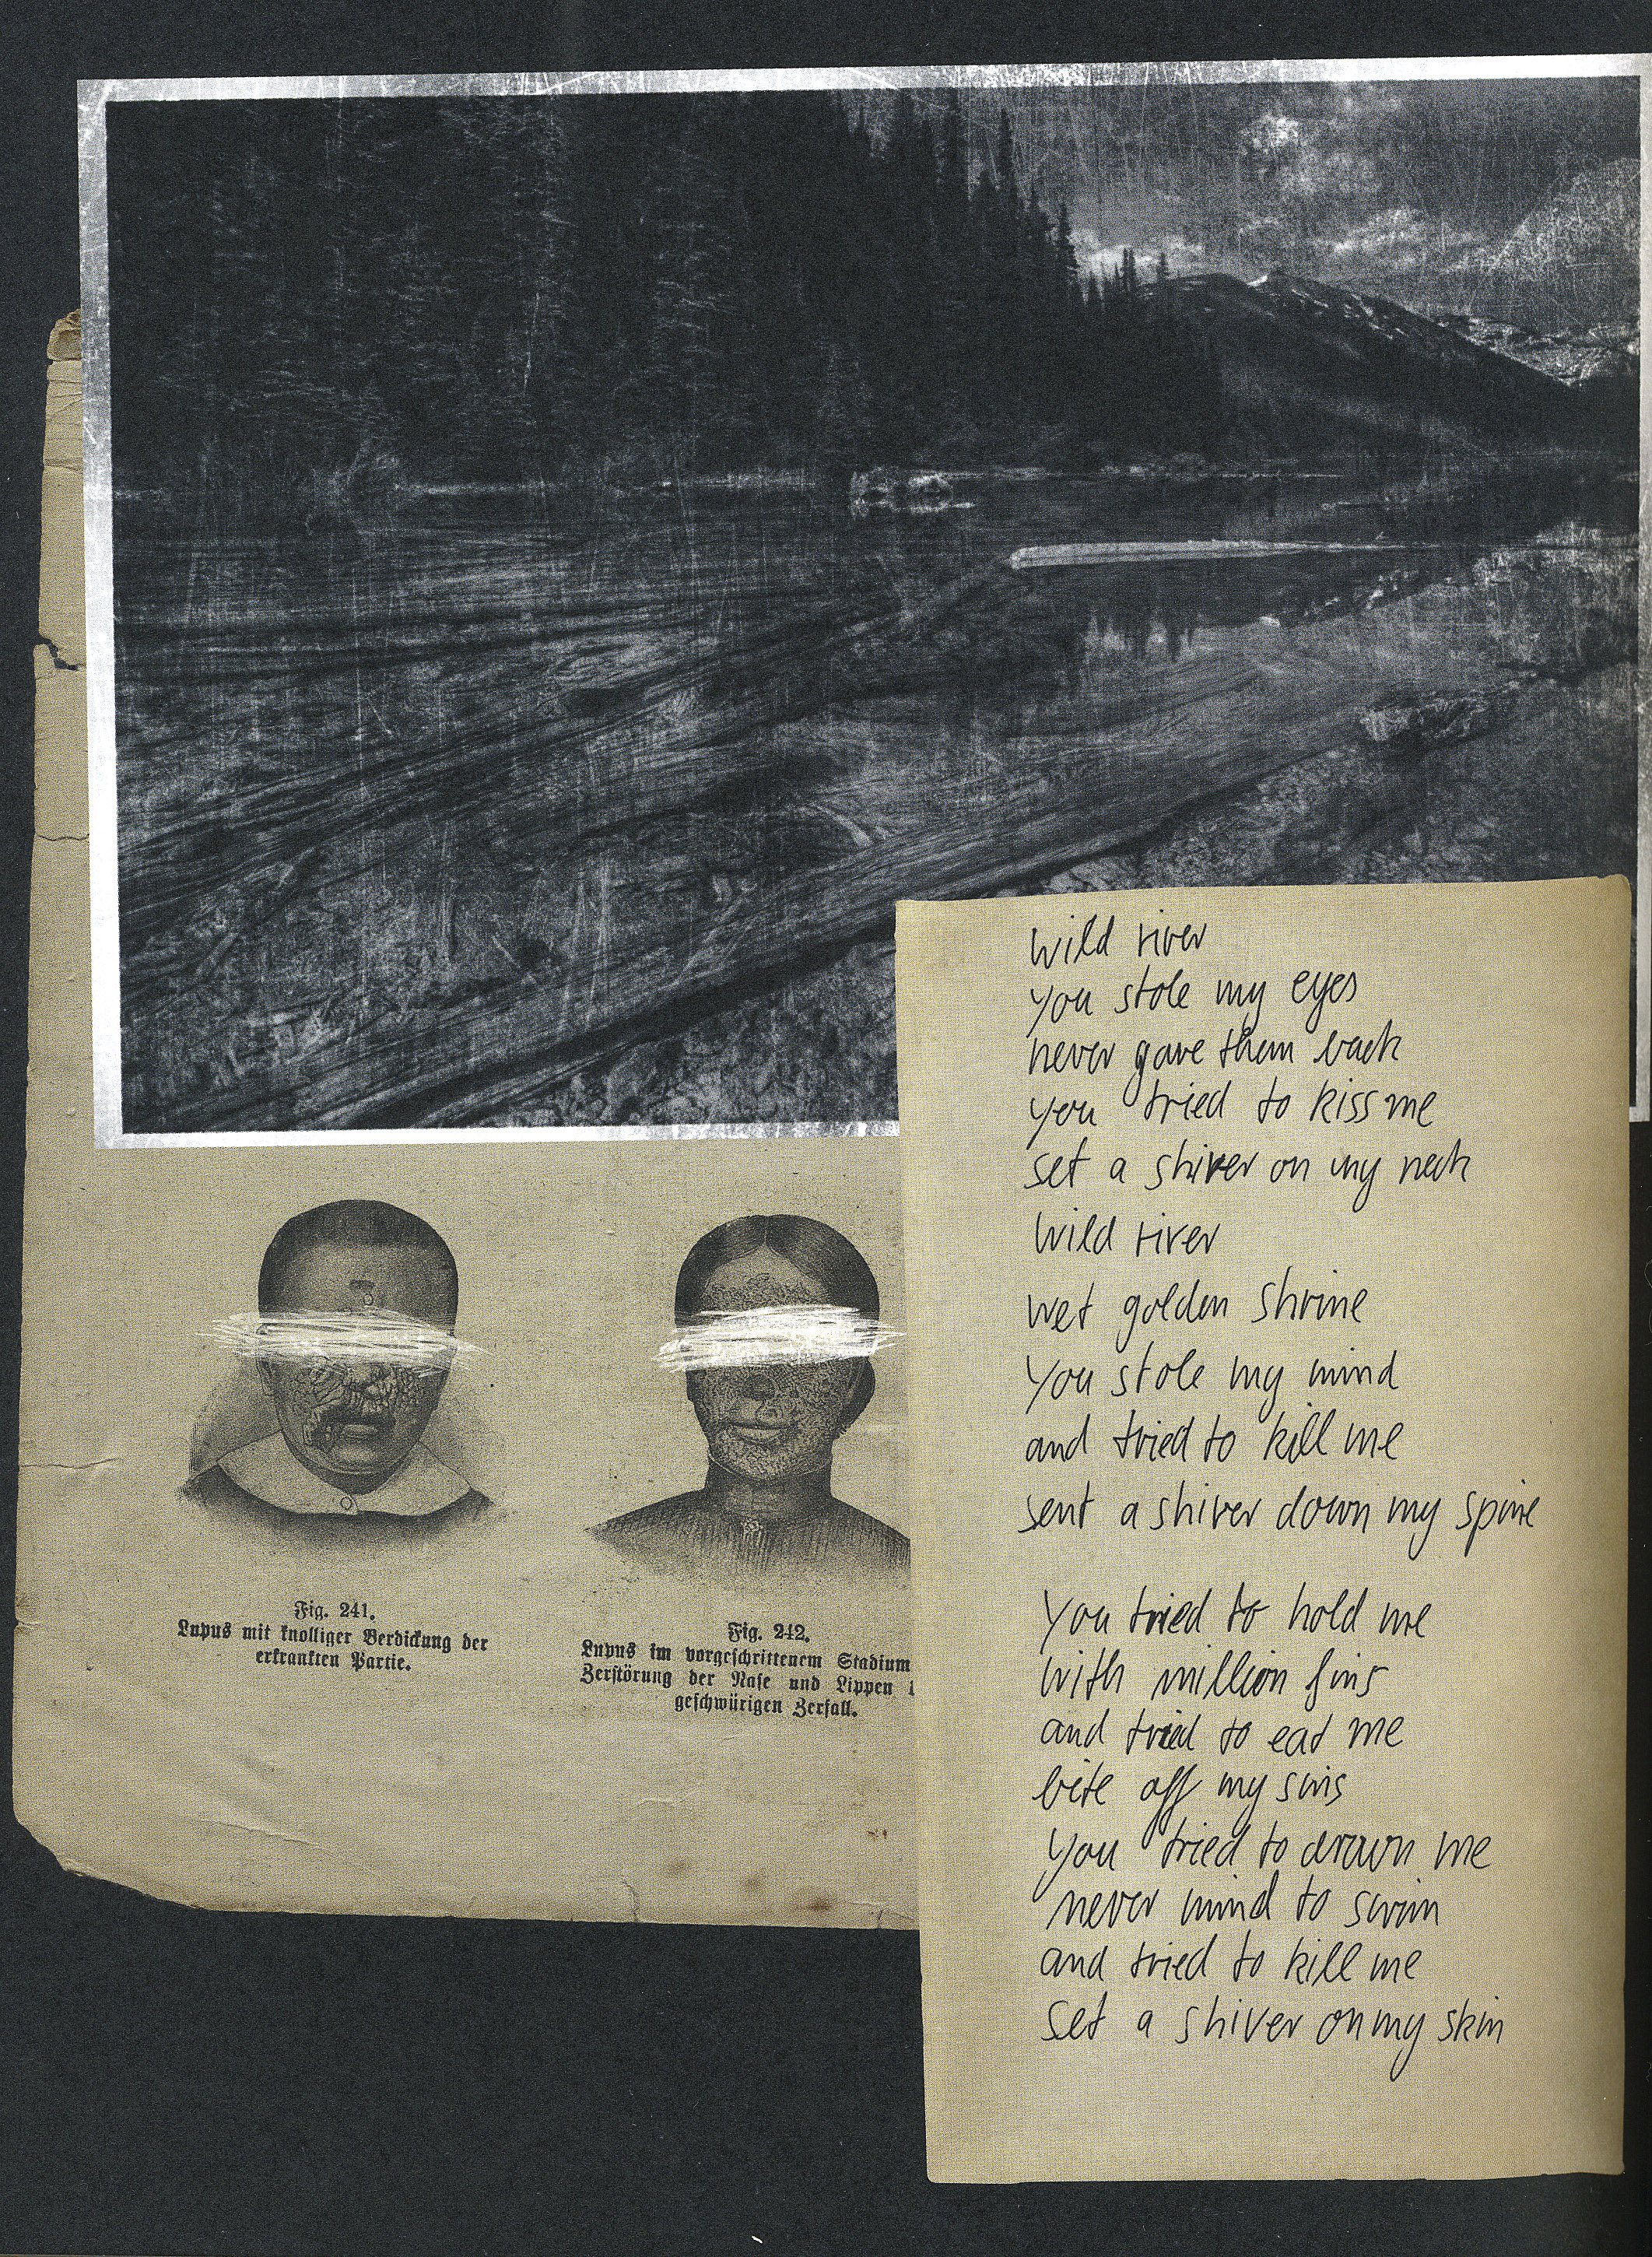 Fig. 241.
Lupus mit knolliger Verdickung der
erkrankten Partie.
Fig. 242.
Lupus im vorgeschrittenem Stadium
Zerstörung der Nase und Lippen
geschwürigen Zerfall.
wild river
you stole my eyes
never gave them back
you tried to kiss me
set a shiver on my neck
wild river
wet golden shrine
you stole my mind
and tried to kill me
sent a shiver down my spine
you tried to hold me
with million fins
and tried to eat me
bite off my sins
you tried to drown me
never mind to swim
and tried to kill me
set a shiver on my skin